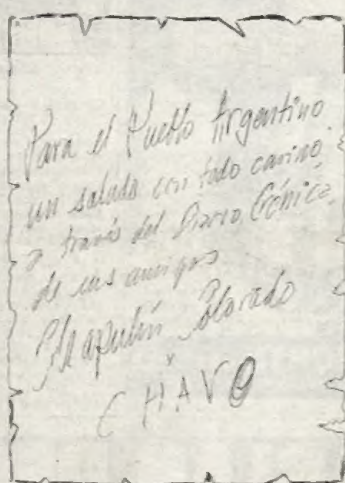 Para el Pueblo Argentino
un saludo con todo cariño,
a través del Diario, Crónica,
de sus amigos
Chapulín Colorado
y
CHAVO